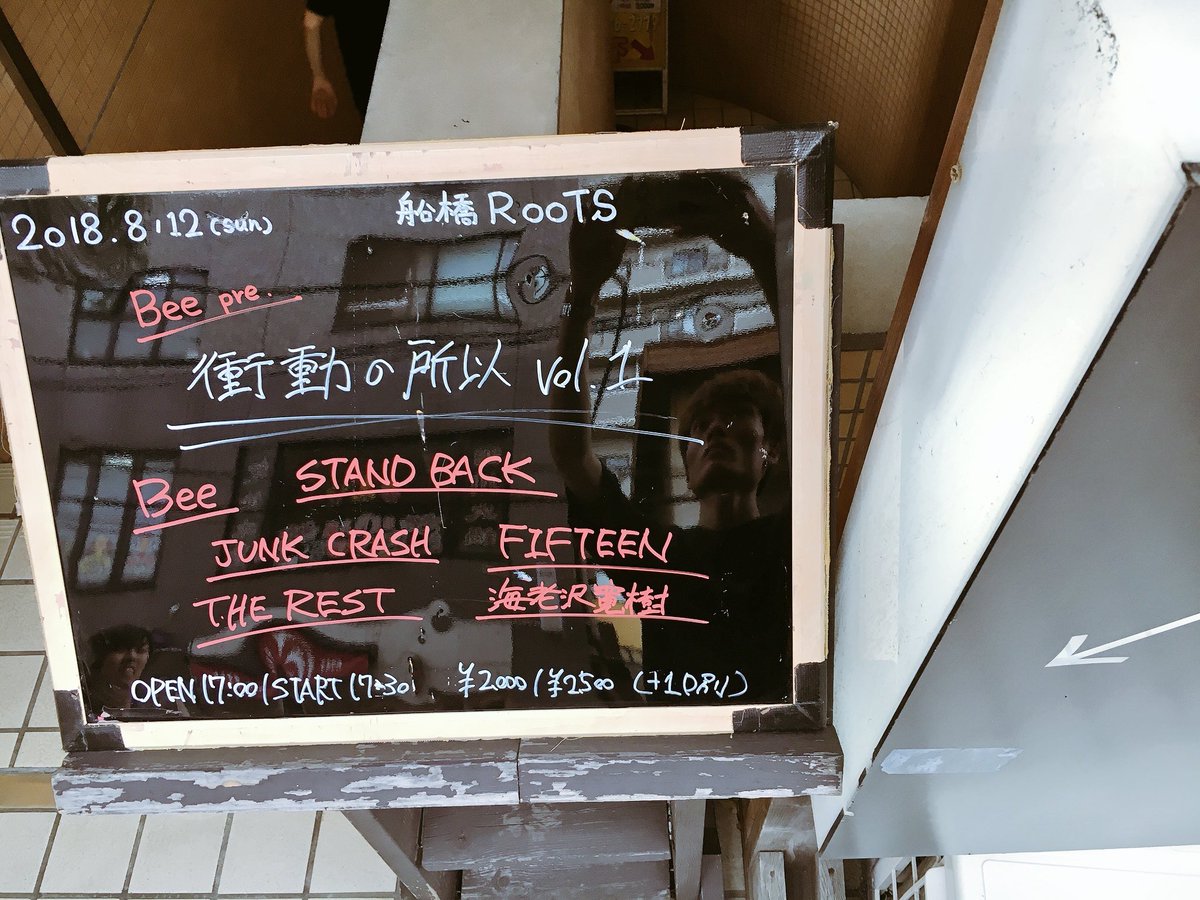 2018.8/12(sun) 船橋 RooTS
Bee pre.
衝動の所以 vol.1
Bee STAND BACK
JUNK CRASH FIFTEEN
THE REST 海老沢寛樹
OPEN 17:00/START 17:30 ¥2000/¥2500 (+1D別)